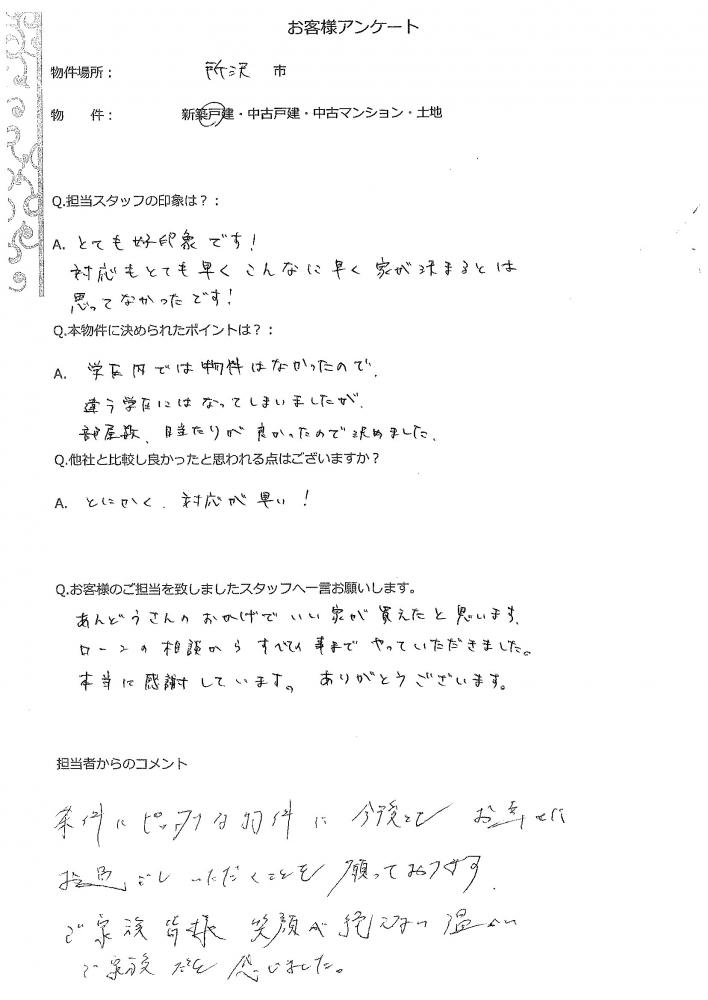 お客様アンケート
物件場所： 所沢 市
物 件： 新築戸建・中古戸建・中古マンション・土地
Q.担当スタッフの印象は？：
A. とても好印象です！
対応もとても早くこんなに早く家が決まるとは
思ってなかったです！
Q.本物件に決められたポイントは？：
A. 学区内では物件はなかったので、
違う学区にはなってしまいましたが、
部屋数、日当たりが良かったので決めました、
Q.他社と比較し良かったと思われる点はございますか？
A. とにかく、対応が早い！
Q.お客様のご担当を致しましたスタッフへ一言お願いします。
あんどうさんのおかげでいい家が買えたと思います、
ローンの相談からすべての事までやっていただきました。
本当に感謝しています。ありがとうございます。
担当者からのコメント
条件にピッタリな物件に今後とも お幸せに
お過ごしいただくことを願っております。
ご家族皆様 笑顔が絶えない温かい
ご家族だと感じました。